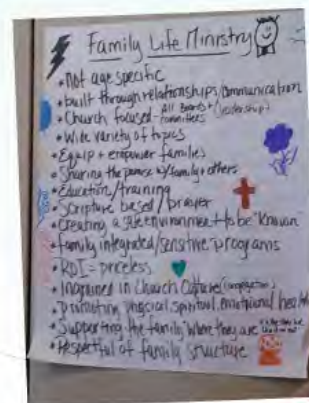 Family Life Ministry
• not age specific
• built through relationships/communication
• Church focused - All Boards + Committees (leadership)
• Wide variety of topics
• Equip + empower families
• Sharing the w/family + others
• Education/training
• Scripture based/prayer
• Creating a safe environment to be "known"
• family integrated/sensitive programs
• ROI = priceless
• Ingrained in Church Culture (congregation)
• promoting physical, spiritual, emotional health
• Supporting the family "where they are"
• Respectful of family structure